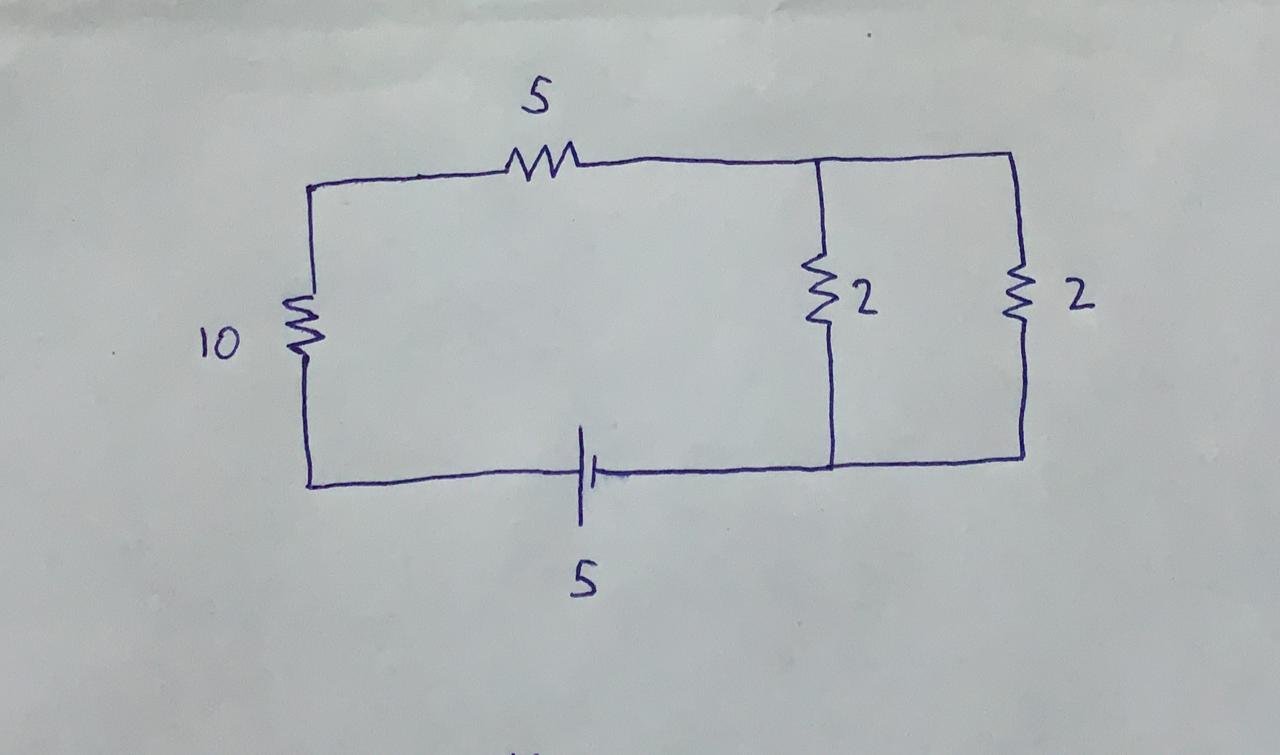 5
10
2
2
5